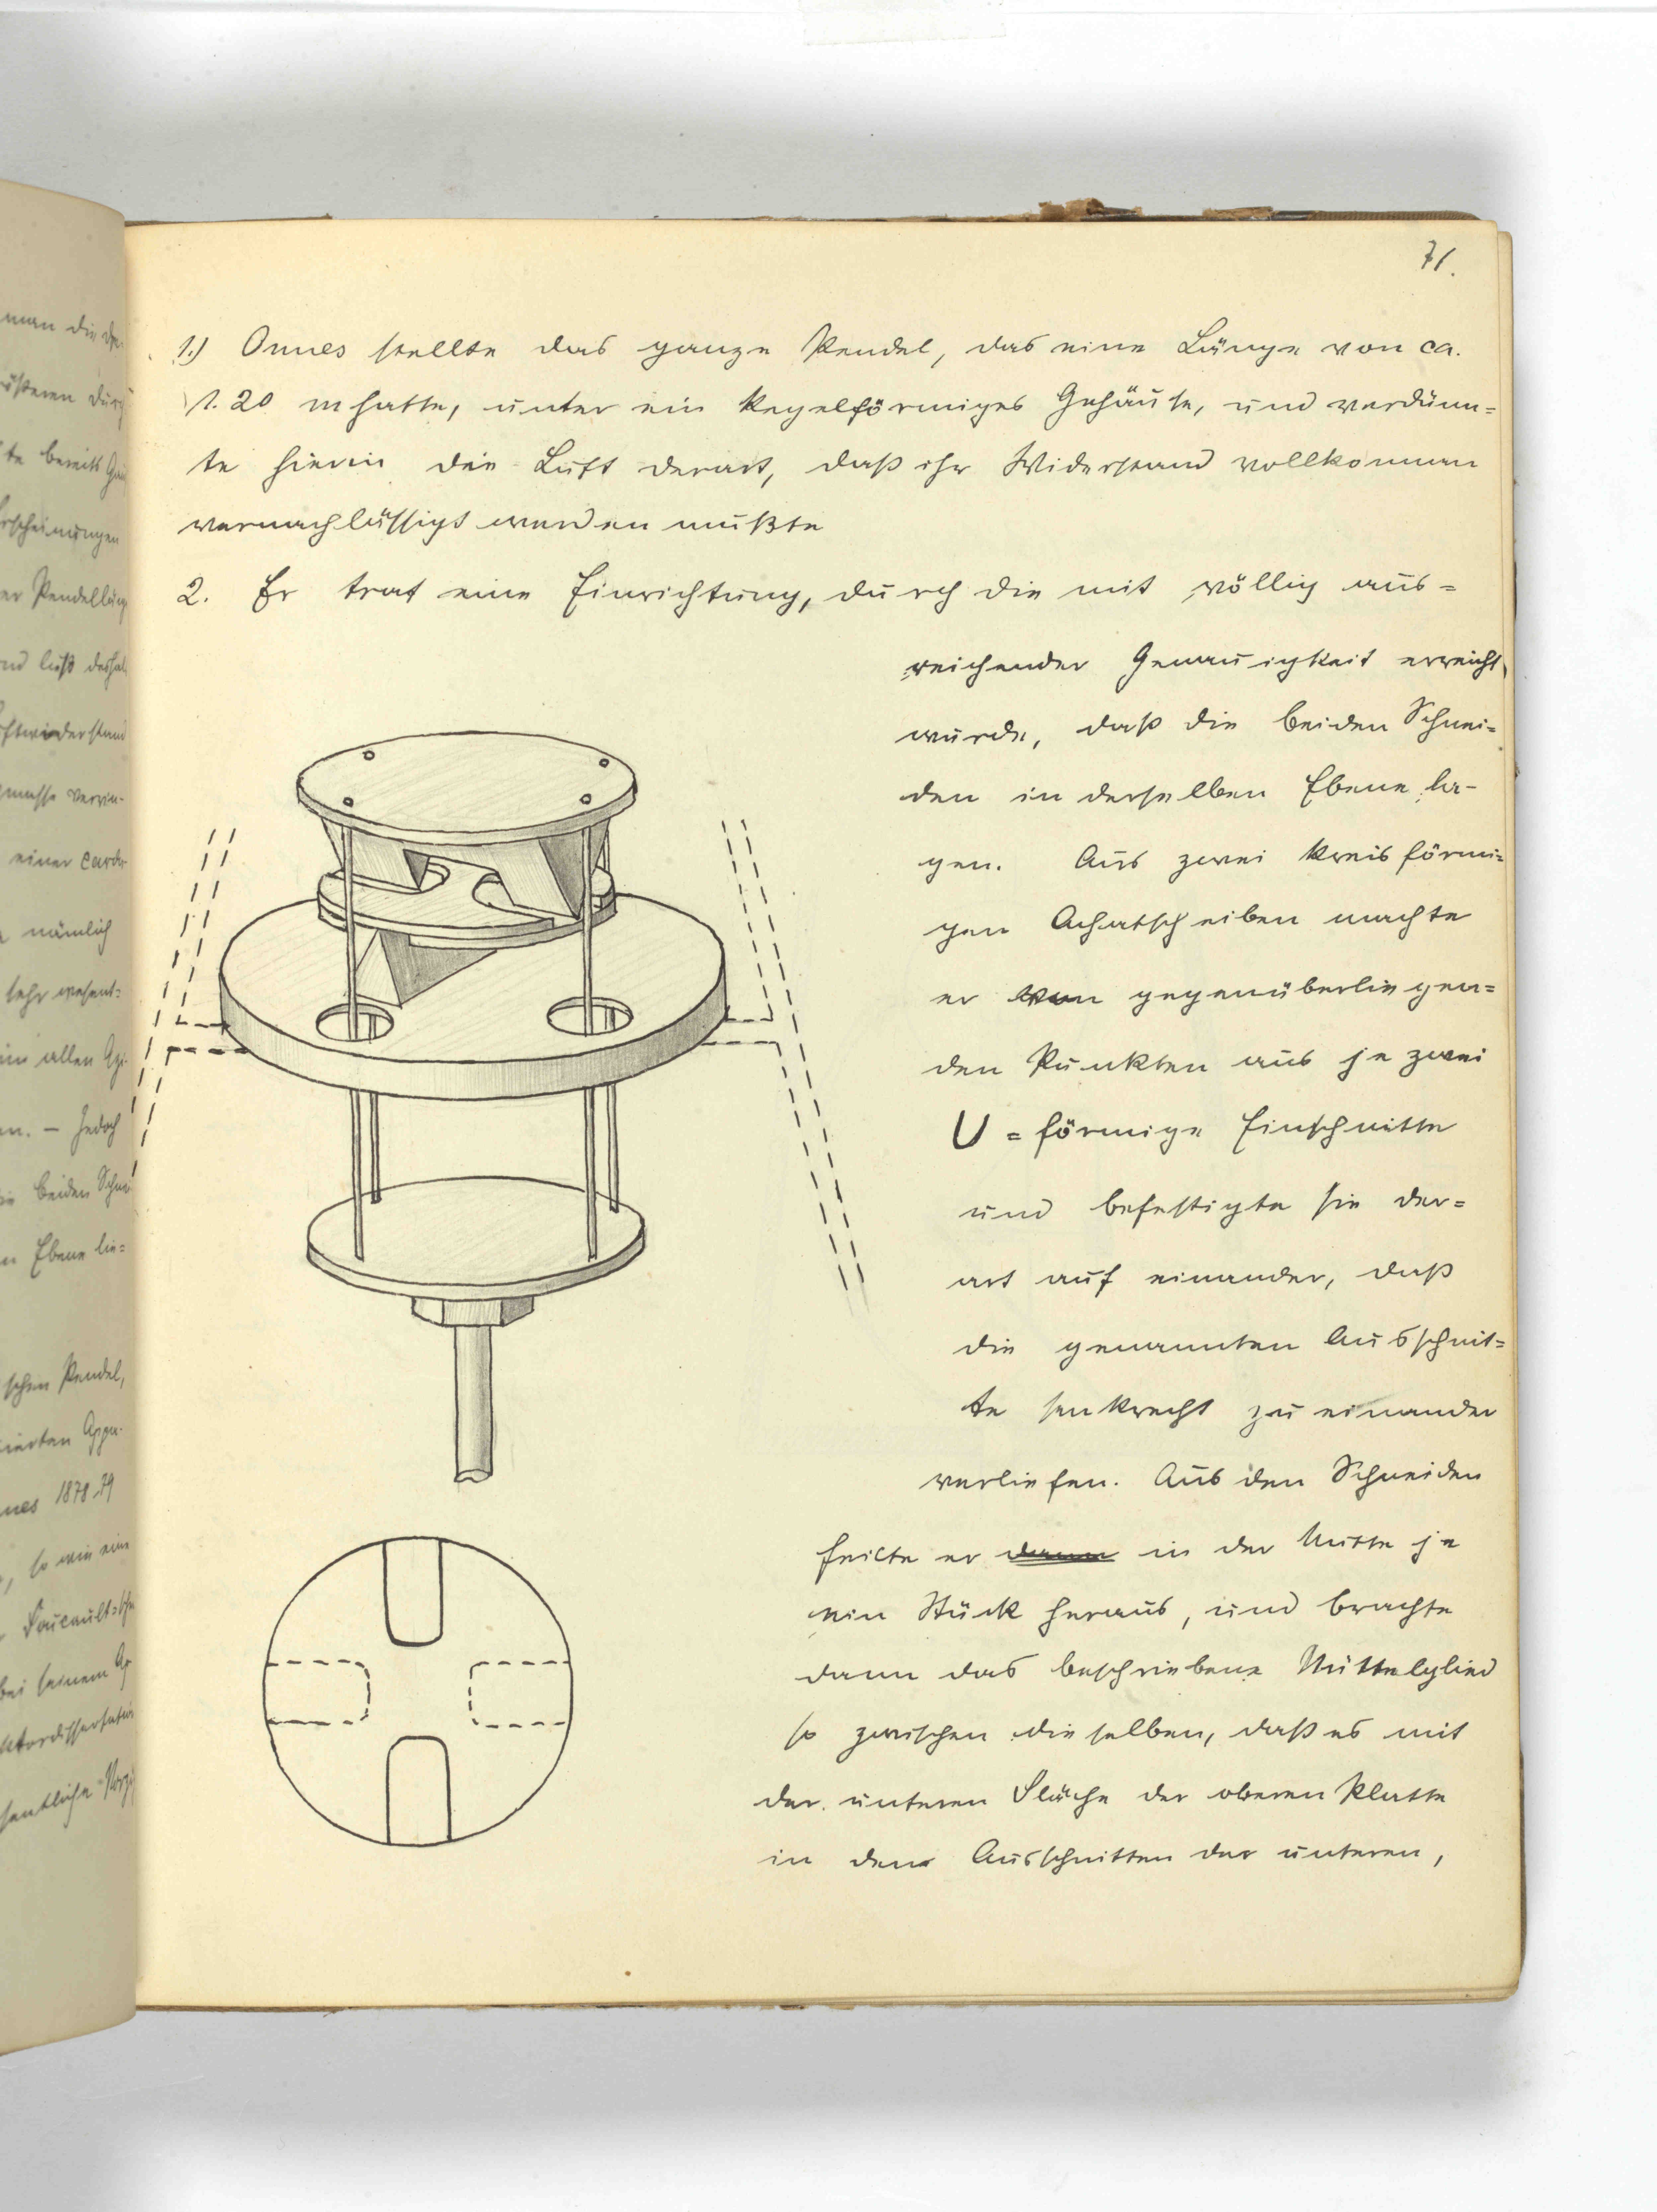 71.
1.) Onnes stellte das ganze Pendel, das eine Länge von ca.
1.20 m hatte, unter ein kegelförmiges Gehäuse, und verdünn=
te hierin die Luft derart, daß ihr Widerstand vollkommen
vernachlässigt werden mußte
2. Er traf eine Einrichtung, durch die mit völlig aus=
reichender Genauigkeit erreicht
wurde, daß die beiden Schnei=
den in derselben Ebene la-
gen. Aus zwei kreisförmi=
gen Achatscheiben machte
er von gegenüberliegen=
den Punkten aus je zwei
U=förmige Einschnitte
und befestigte sie der=
art auf einander, daß
die genannten Ausschnit=
te senkrecht zu einander
verliefen. Aus den Schneiden
feilte er dann in der Mitte je
ein Stück heraus, und brachte
dann das beschriebene Mittelglied
so zwischen dieselben, daß es mit
der unteren Fläche der oberen Platte
in den Ausschnitten der unteren,
man die
bereits
Pendelläng
nämlich
allen
Jedoch
beiden
Ebene lie=
schen Pendel,
1878-79
so wie eine
bei seinem